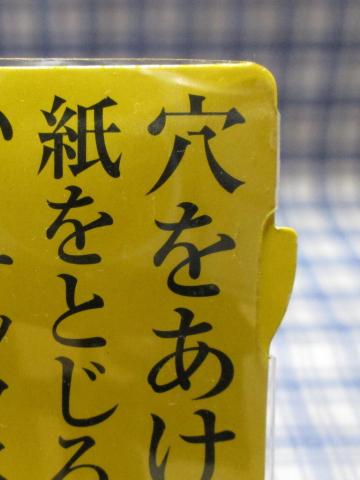 穴をあけ
紙をとじろ